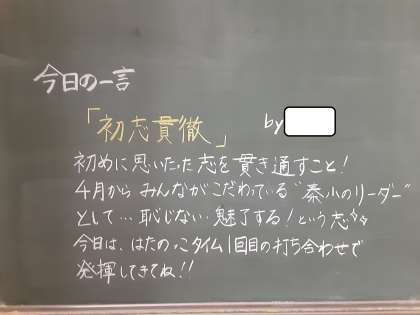 今日の一言
「初志貫徹」 by
初めに思いたった志を貫き通すこと!
4月から みんながこだわっている"秦小のリーダー"
として…恥じない…魅了する!という志が
今日は、はたのっこタイム1回目の打ち合わせで
発揮してきてね!!